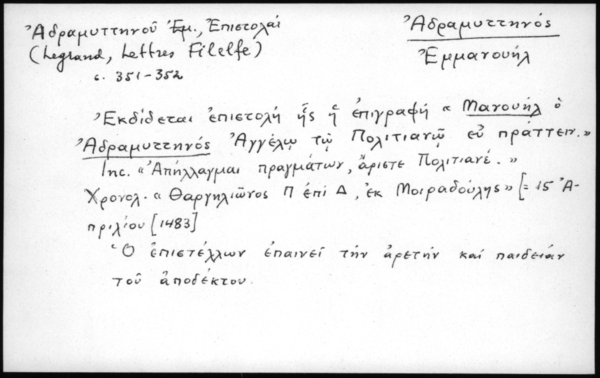 Ἀδραμυττηνοῦ Ἐμ., Ἐπιστολαί
(Legrand, Lettres Filelfe)
c. 351-352
Ἀδραμυττηνός
Ἐμμανουήλ
Ἐκδίδεται ἐπιστολή ἧς ἡ ἐπιγραφή « Μανουήλ ὁ
Ἀδραμυττηνός Ἀγγέλῳ τῷ Πολιτιανῷ εὖ πράττειν.»
Inc. «Ἀπήλλαγμαι πραγμάτων, ἄριστε Πολιτιανέ.»
Χρονολ. « Θαργηλιῶνος Π ἐπί Δ, ἐκ Μοιραδούλης» [= 15 Ἀ-
πριλίου [1483]
Ὁ ἐπιστέλλων ἐπαινεῖ τήν ἀρετήν καί παιδείαν
τοῦ ἀποδέκτου.